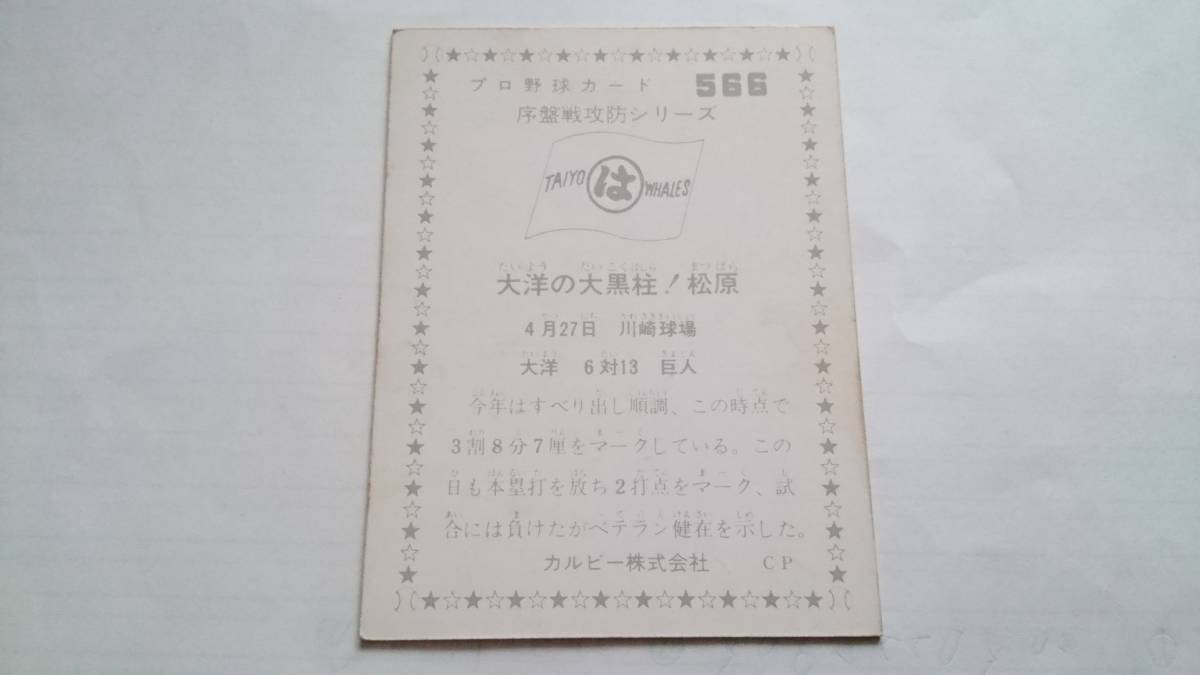 プロ野球カード 566
序盤戦攻防シリーズ
TAIYO は WHALES
大洋の大黒柱！松原
4月27日 川崎球場
大洋 6対13 巨人
今年はすべり出し順調、この時点で
3割8分7厘をマークしている。この
日も本塁打を放ち2打点をマーク、試
合には負けたがベテラン健在を示した。
カルビー株式会社 CP